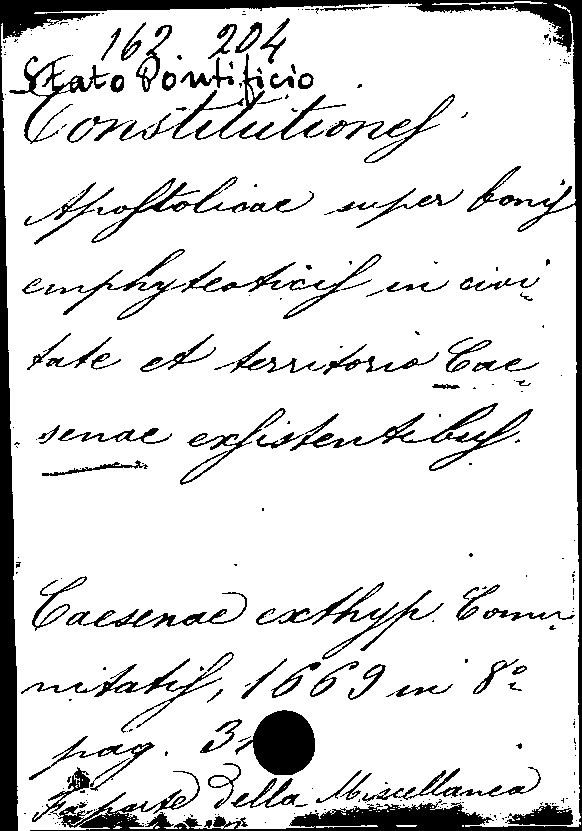 162 204
Stato Pontificio
Constitutiones
Apostolicae super bonis
emphyteoticis in civi-
tate et territorio Cae-
senae exsistentibus.
Caesenae ex thyp. Comu-
nitatis, 1669 in 8º
pag.
Fa parte della Miscellanea